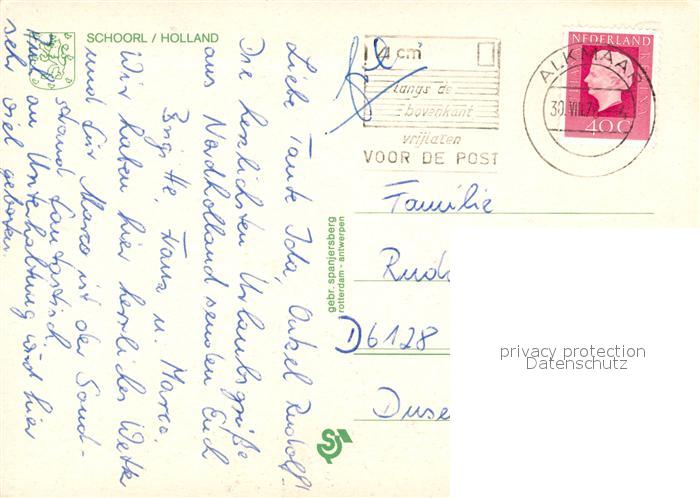 SCHOORL / HOLLAND
4 cm
langs de
bovenkant
vrijlaten
VOOR DE POST
NEDERLAND
40 C
ALKMAAR
30. VIII.7
Liebe Tante Ida, Onkel Rudolf!
Die herzlichsten Urlaubsgrüße
aus Nordholland senden Euch
Brigitte, Franz u. Marco.
Wir haben hier herrliches Wetter
und für Marco ist der Sand-
strand fantastisch
Auch an Unterhaltung wird hier
sehr viel geboten.
gebr. spanjersberg
rotterdam - antwerpen
Familie
Rud
D 6128
Duse
privacy protection
Datenschutz